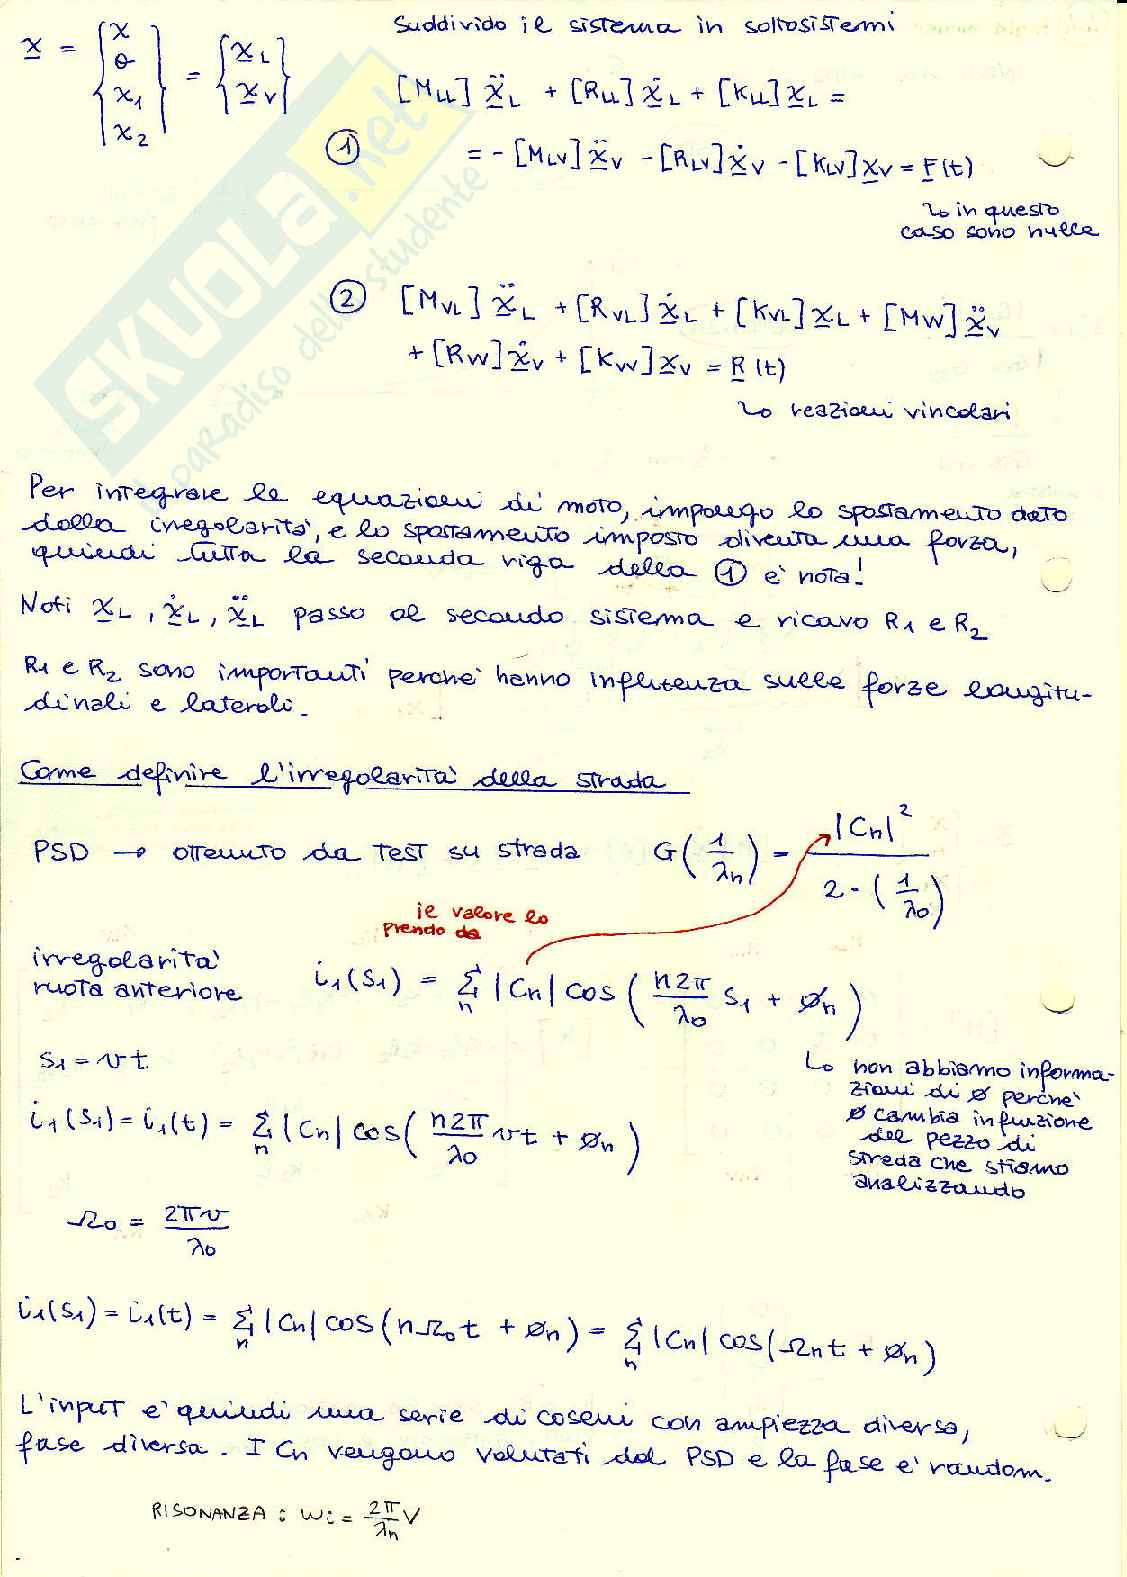 Suddivido il sistema in sottosistemi
x = {x θ x1 x2} = {xL xV}
[MLL] ẍL + [RLL] ẋL + [KLL] xL =
① = - [MLV] ẍV - [RLV] ẋV - [KLV] xV = F(t)
↳ in questo
caso sono nulle
② [MVL] ẍL + [RVL] ẋL + [KVL] xL + [MVV] ẍV
+ [RVV] ẋV + [KVV] xV = R(t)
↳ reazioni vincolari
SKUOLA.net
il paradiso dello studente
Per integrare le equazioni di moto, impongo lo spostamento dato
dalla irregolarità, e lo spostamento imposto diventa una forza,
quindi tutta la seconda riga della ① è nota!
Noti xL, ẋL, ẍL passo al secondo sistema e ricavo R1 e R2
R1 e R2 sono importanti perché hanno influenza sulle forze longitu-
dinali e laterali.
Come definire l'irregolarità della strada
PSD → ottenuto da test su strada G(1/λn) = |Cn|² / 2·(1/λ0)
il valore lo
prendo da
irregolarità
ruota anteriore
i1(s1) = Σn |Cn| cos(n2π/λ0 s1 + øn)
s1 = vt
↳ non abbiamo informa-
zioni di ø perché
ø cambia in funzione
del pezzo di
strada che stiamo
analizzando
i1(s1) = i1(t) = Σn |Cn| cos(n2π/λ0 vt + øn)
Ω0 = 2πv/λ0
i1(s1) = i1(t) = Σn |Cn| cos(nΩ0t + øn) = Σn |Cn| cos(Ωnt + øn)
L'input è quindi una serie di coseni con ampiezza diversa,
fase diversa. I Cn vengono valutati dal PSD e la fase è random.
RISONANZA : ωi = 2π/λn V